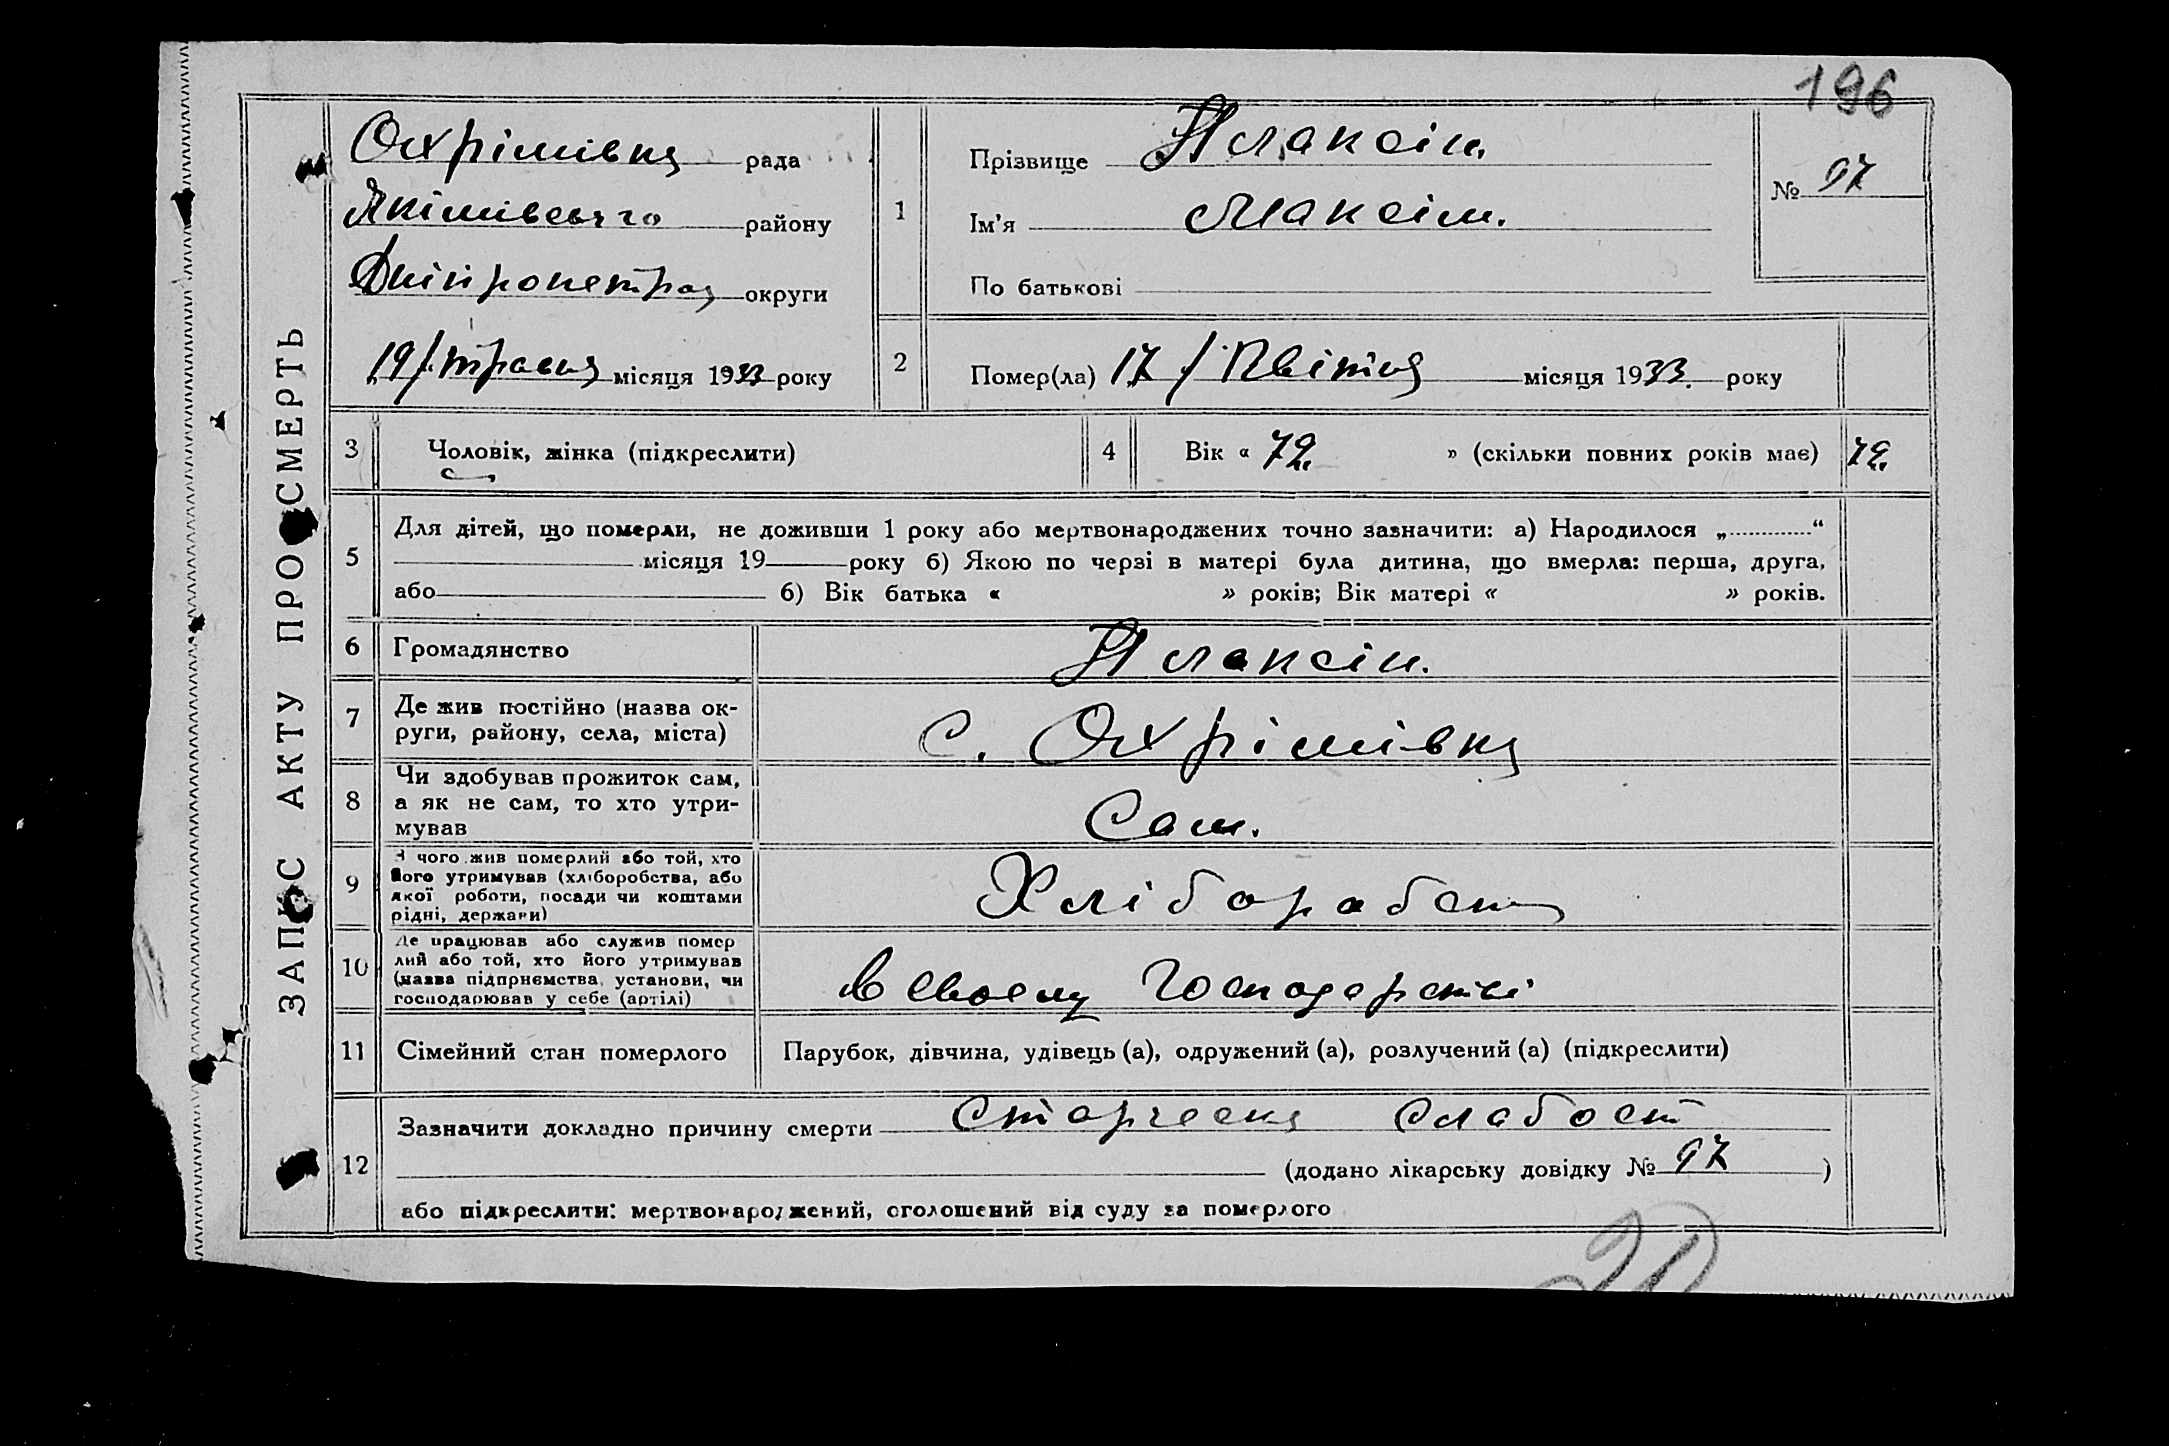 196
ЗАПИС АКТУ ПРО СМЕРТЬ
Охрімівку рада
Якімівського району
Дніпропетров округи
19/травня місяця 1933 року
1
Прізвище Плаксін.
Ім'я Максім.
По батькові
№ 97
2
Помер(ла) 17 / Квітня місяця 1933. року
3
Чоловік, жінка (підкреслити)
4
Вік « 72 » (скільки повних років має) 72
5
Для дітей, що померли, не доживши 1 року або мертвонароджених точно зазначити: а) Народилося „ “
місяця 19 року б) Якою по черзі в матері була дитина, що вмерла: перша, друга,
або б) Вік батька « » років; Вік матері « » років.
6
Громадянство
Плаксін.
7
Де жив постійно (назва ок-
руги, району, села, міста)
с. Охрімівку
8
Чи здобував прожиток сам,
а як не сам, то хто утри-
мував
Сам.
9
З чого жив померлий або той, хто
його утримував (хліборобства, або
якої роботи, посади чи коштами
рідні, держави)
Хліборобст
10
Де працював або служив помер
лий або той, хто його утримував
(назва підприємства, установи, чи
господарював у себе (артілі)
в своєму господарстві
11
Сімейний стан померлого
Парубок, дівчина, удівець (а), одружений (а), розлучений (а) (підкреслити)
12
Зазначити докладно причину смерти старческа слабост
(додано лікарську довідку № 97 )
або підкреслити: мертвонароджений, оголошений від суду за померлого